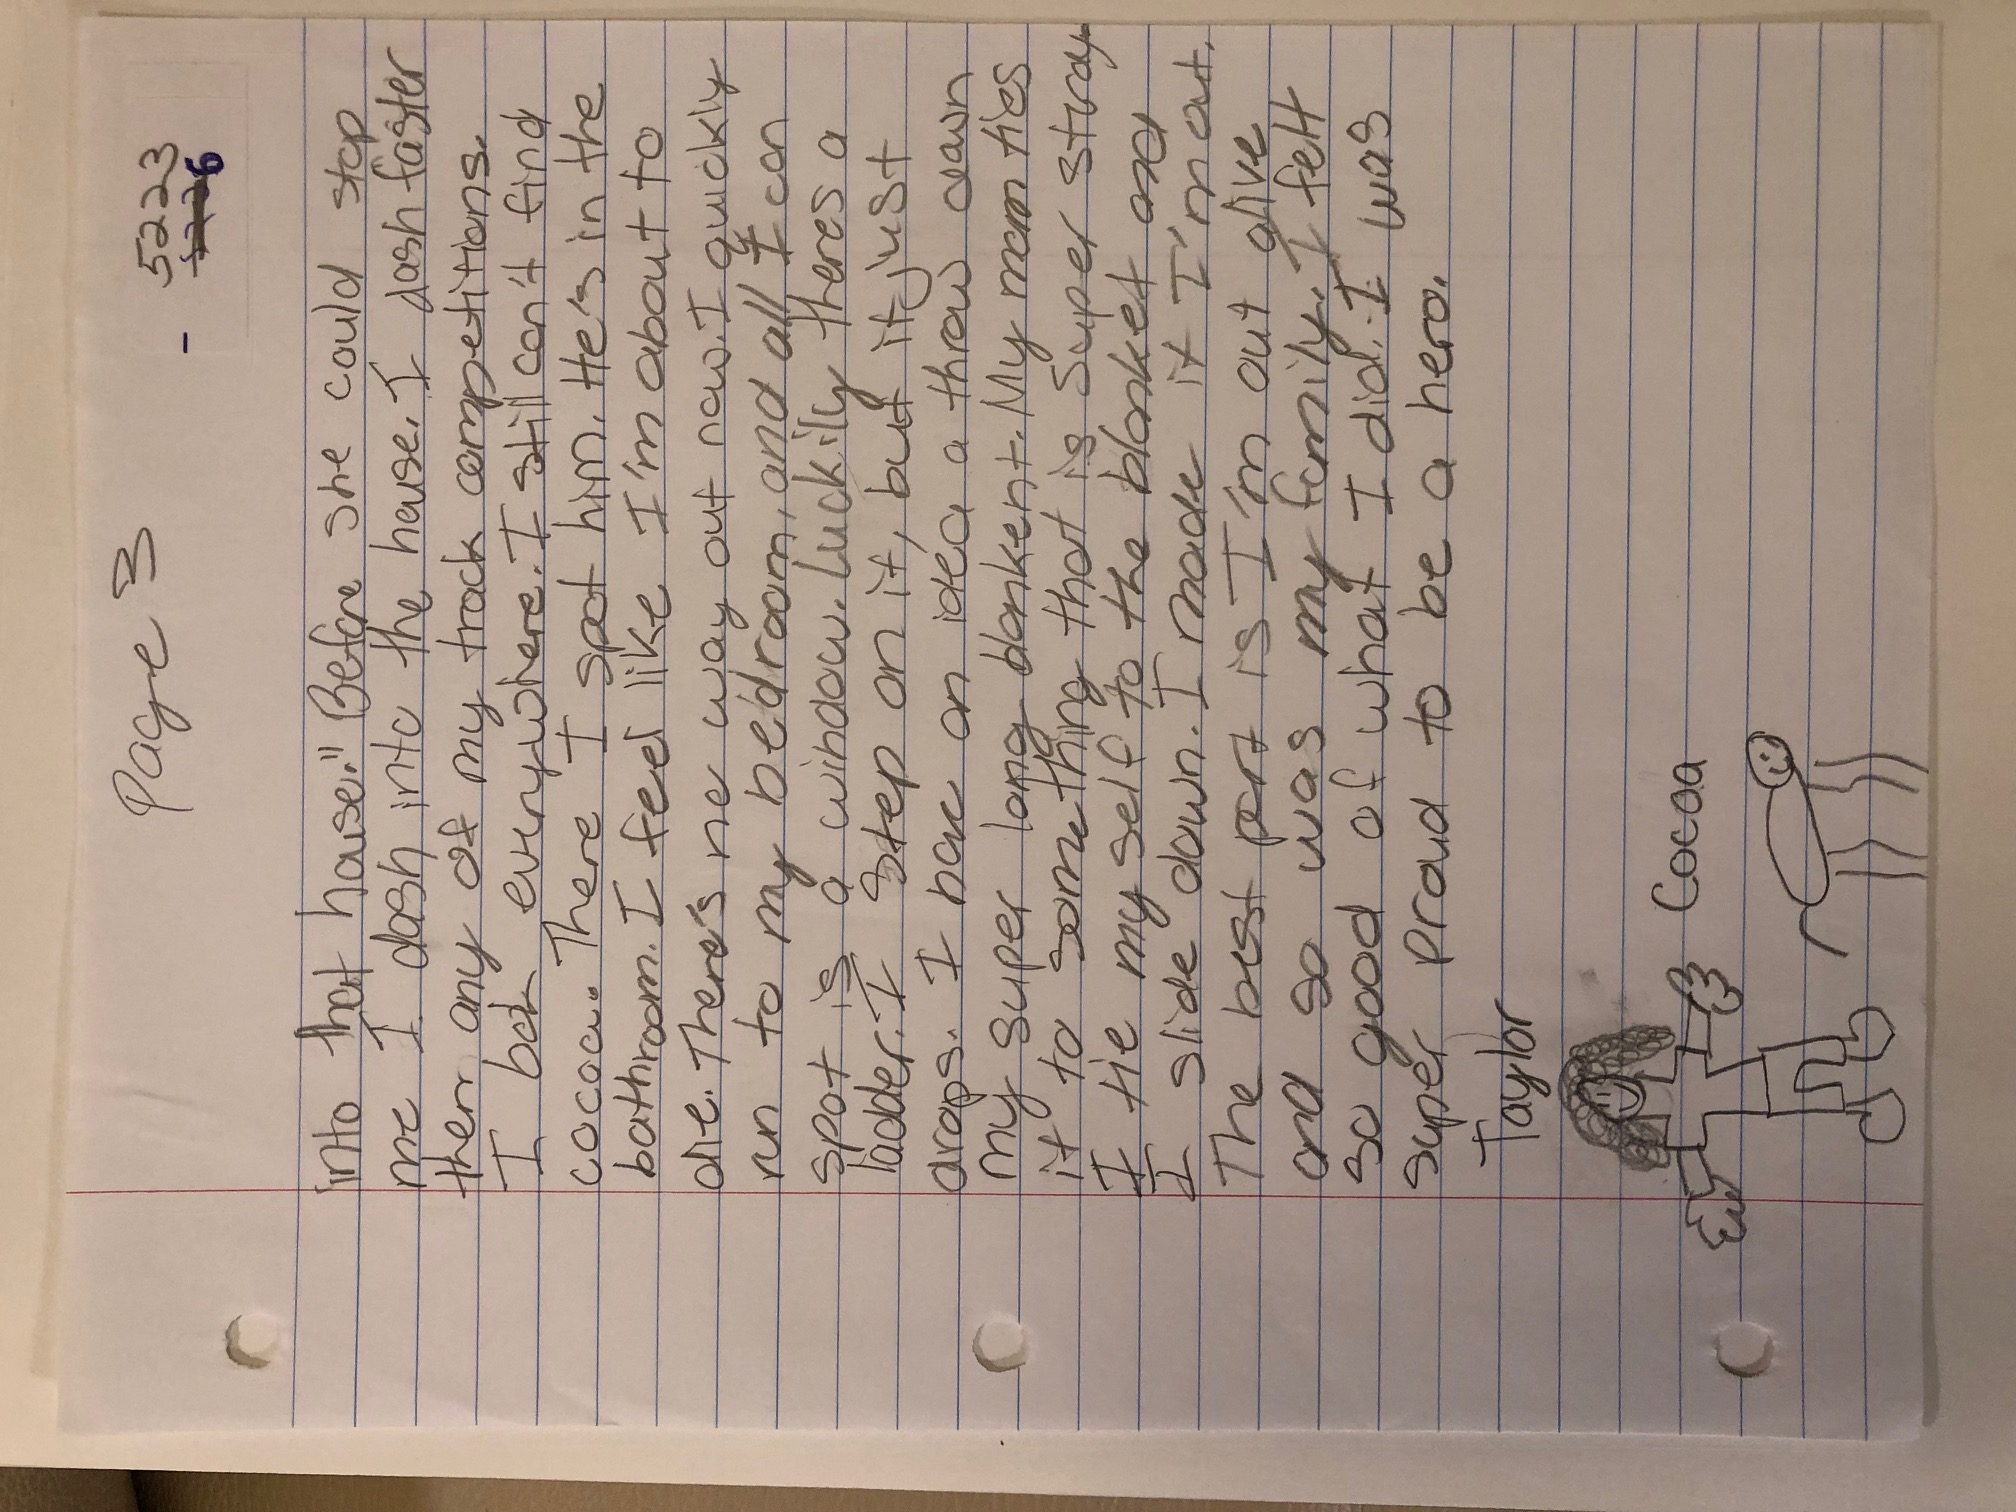 Page 3
5223
- 6
into that house." Before she could stop
me I dash into the house. I dash faster
then any of my track competitions.
I look everywhere. I still can't find
cocoa. There I spot him. He's in the
bathroom. I feel like I'm about to
die. There's no way out now. I quickly
run to my bedroom, and all I can
spot is a window. Luckily theres a
ladder. I step on it, but it just
drops. I have an idea a throw down
my super long blankent. My mom ties
it to something that is super
I tie my self to the blanket and
I slide down. I made it I'm out.
The best part is I'm out alive
and so was my family. I felt
so good of what I did. I was
super proud to be a hero.
Taylor
Cocoa